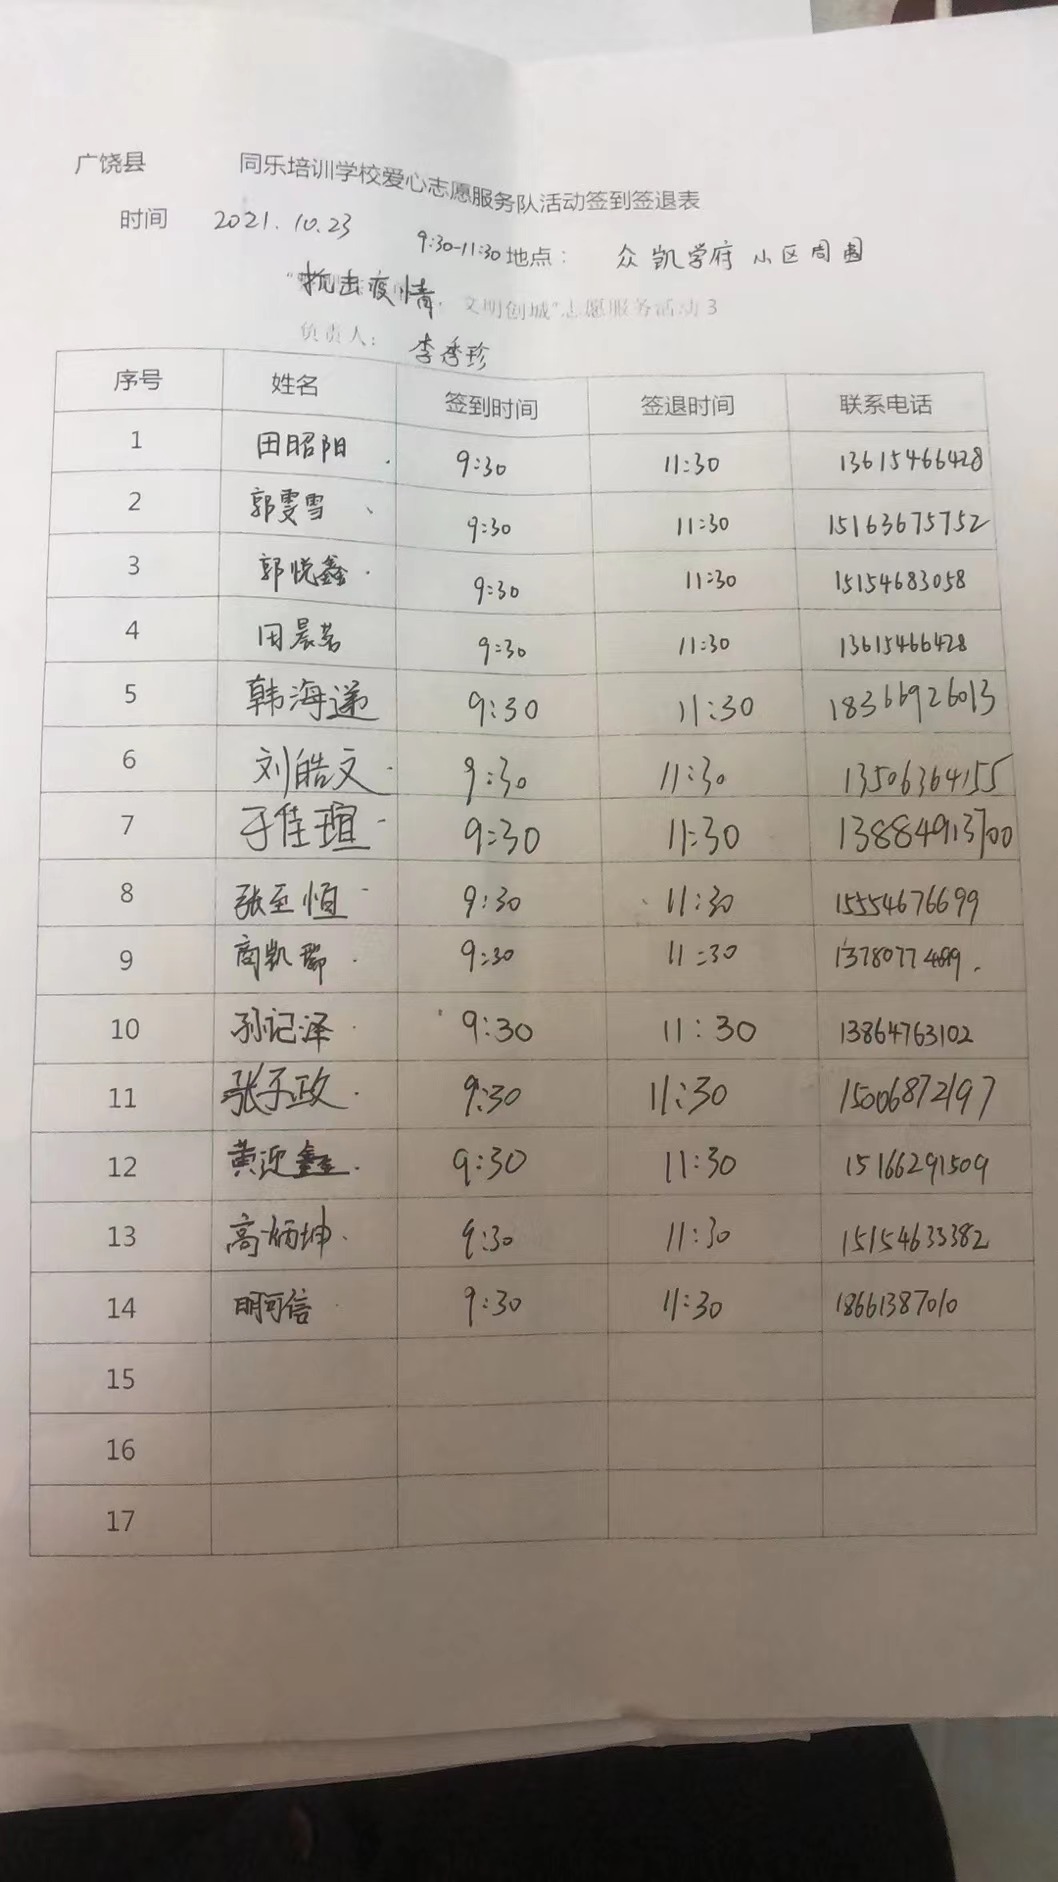 广饶县 同乐培训学校爱心志愿服务队活动签到签退表
时间 2021.10.23 9:30-11:30 地点： 众凯学府小区周围
"抗击疫情，文明创城"志愿服务活动3
负责人： 李秀珍
序号 姓名 签到时间 签退时间 联系电话
1 田昭阳 9:30 11:30 13615466428
2 郭雯雪 9:30 11:30 15163675752
3 郭悦鑫 9:30 11:30 15154683058
4 田晨茗 9:30 11:30 13615466428
5 韩海递 9:30 11:30 18366926013
6 刘皓文 9:30 11:30 13506364155
7 于佳瑄 9:30 11:30 13884913700
8 张至恒 9:30 11:30 15554676699
9 商凯 9:30 11:30
10 孙记泽 9:30 11:30 13864763102
11 张子政 9:30 11:30 15006872197
12 黄迎鑫 9:30 11:30 15166291509
13 高炳坤 9:30 11:30 15154633382
14 明可信 9:30 11:30 18661387010
15
16
17